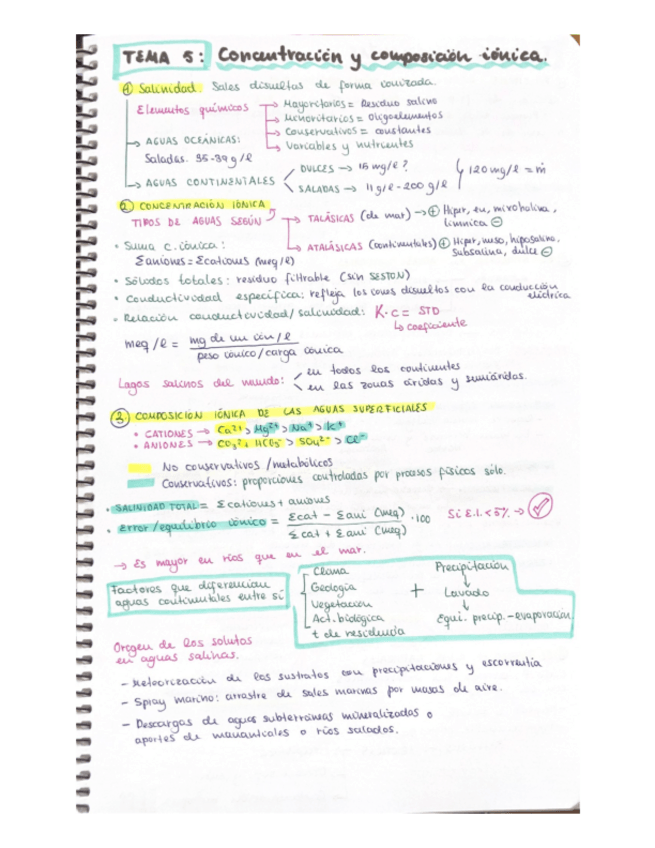 TEMA 5: Concentración y composición iónica.
① Salinidad: Sales disueltas de forma ionizada.
Elementos químicos → Mayoritarios = Residuo salino
→ Minoritarios = oligoelementos
→ Conservativos = constantes
→ Variables y nutrientes
→ AGUAS OCEÁNICAS:
Saladas. 35-39 g/l
→ AGUAS CONTINENTALES
DULCES → 15 mg/l?
SALADAS → 11 g/l - 200 g/l
120 mg/l = m̄
② CONCENTRACIÓN IÓNICA
TIPOS DE AGUAS SEGÚN
→ TALÁSICAS (de mar) → ⊕ Hiper, eu, mixohalina,
límnica ⊖
→ ATALÁSICAS (continentales) ⊕ Hiper, meso, hiposalino,
subsalina, dulce ⊖
• Suma c. iónica:
Σaniones = Σcationes (meq/l)
• Sólodos totales: residuo filtrable (sin SESTON)
• Conductividad específica: refleja los iones disueltos con la conducción
eléctrica
• Relación conductividad/salinidad: K·C = STD
↳ coeficiente
meq/l = mg de un ión/l
peso iónico/carga iónica
Lagos salinos del mundo:
en todos los continentes
en las zonas áridas y semiáridas.
③ COMPOSICIÓN IÓNICA DE LAS AGUAS SUPERFICIALES
• CATIONES → Ca2+ > Mg2+ > Na+ > K+
• ANIONES → CO3²⁻ + HCO3⁻ > SO4²⁻ > Cl⁻
No conservativos/metabólicos
Conservativos: proporciones controladas por procesos físicos sólo.
• SALINIDAD TOTAL = Σcationes + aniones
• Error/equilibrio iónico = Σcat - Σani (meq) · 100
Σcat + Σani (meq)
Si E.I. < 5% → ✓
→ Es mayor en ríos que en el mar.
Factores que diferencian
aguas continentales entre sí
Clima
Geología
Vegetación
Act. biológica
t de residencia
+
Precipitación
↓
Lavado
↓
Equi. precip. - evaporación
Origen de los solutos
en aguas salinas.
- Meteorización de los sustratos con precipitaciones y escorrentía
- Spray marino: arrastre de sales marinas por masas de aire.
- Descargas de aguas subterráneas mineralizadas o
aportes de manantiales o ríos salados.